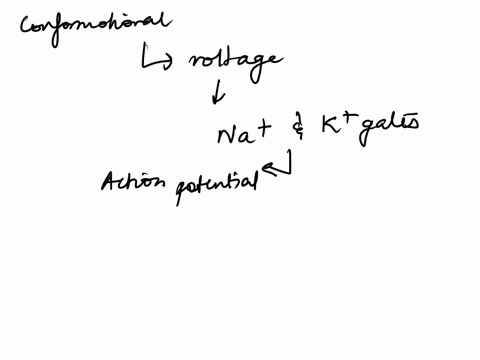 Conformational
↳ voltage
↓
Na+ & K+ gates
Action potential ↵